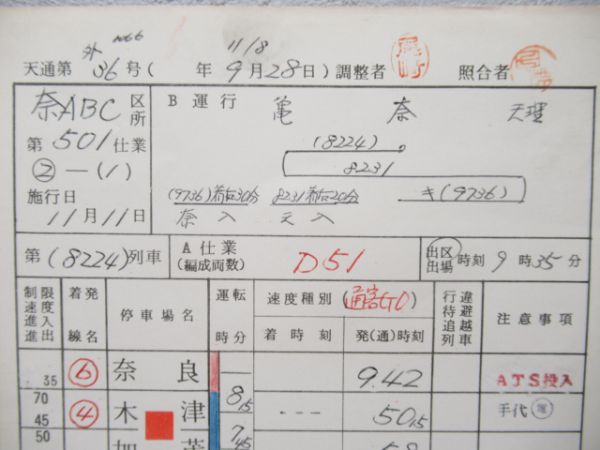 外 No66
11/8
天通第 36号( 年9月28日)調整者 照合者
奈ABC 区所
第501仕業
②－(1)
施行日
11月11日
B 運行 亀 奈 天理
(8224)
8231
キ(9736)
(9736) 8231
奈入 天入
第(8224)列車
A 仕業
(編成両数)
D51
出区
出場 時刻 9時35分
制限速度進入進出
着発線名
停車場名
運転時分
速度種別
着時刻
発(通)時刻
行違待避追越列車
注意事項
35 ⑥ 奈良 9.42 ATS投入
70
45 ④ 木津 8 15 --- 50 15 手代
50 加茂 7 45 58